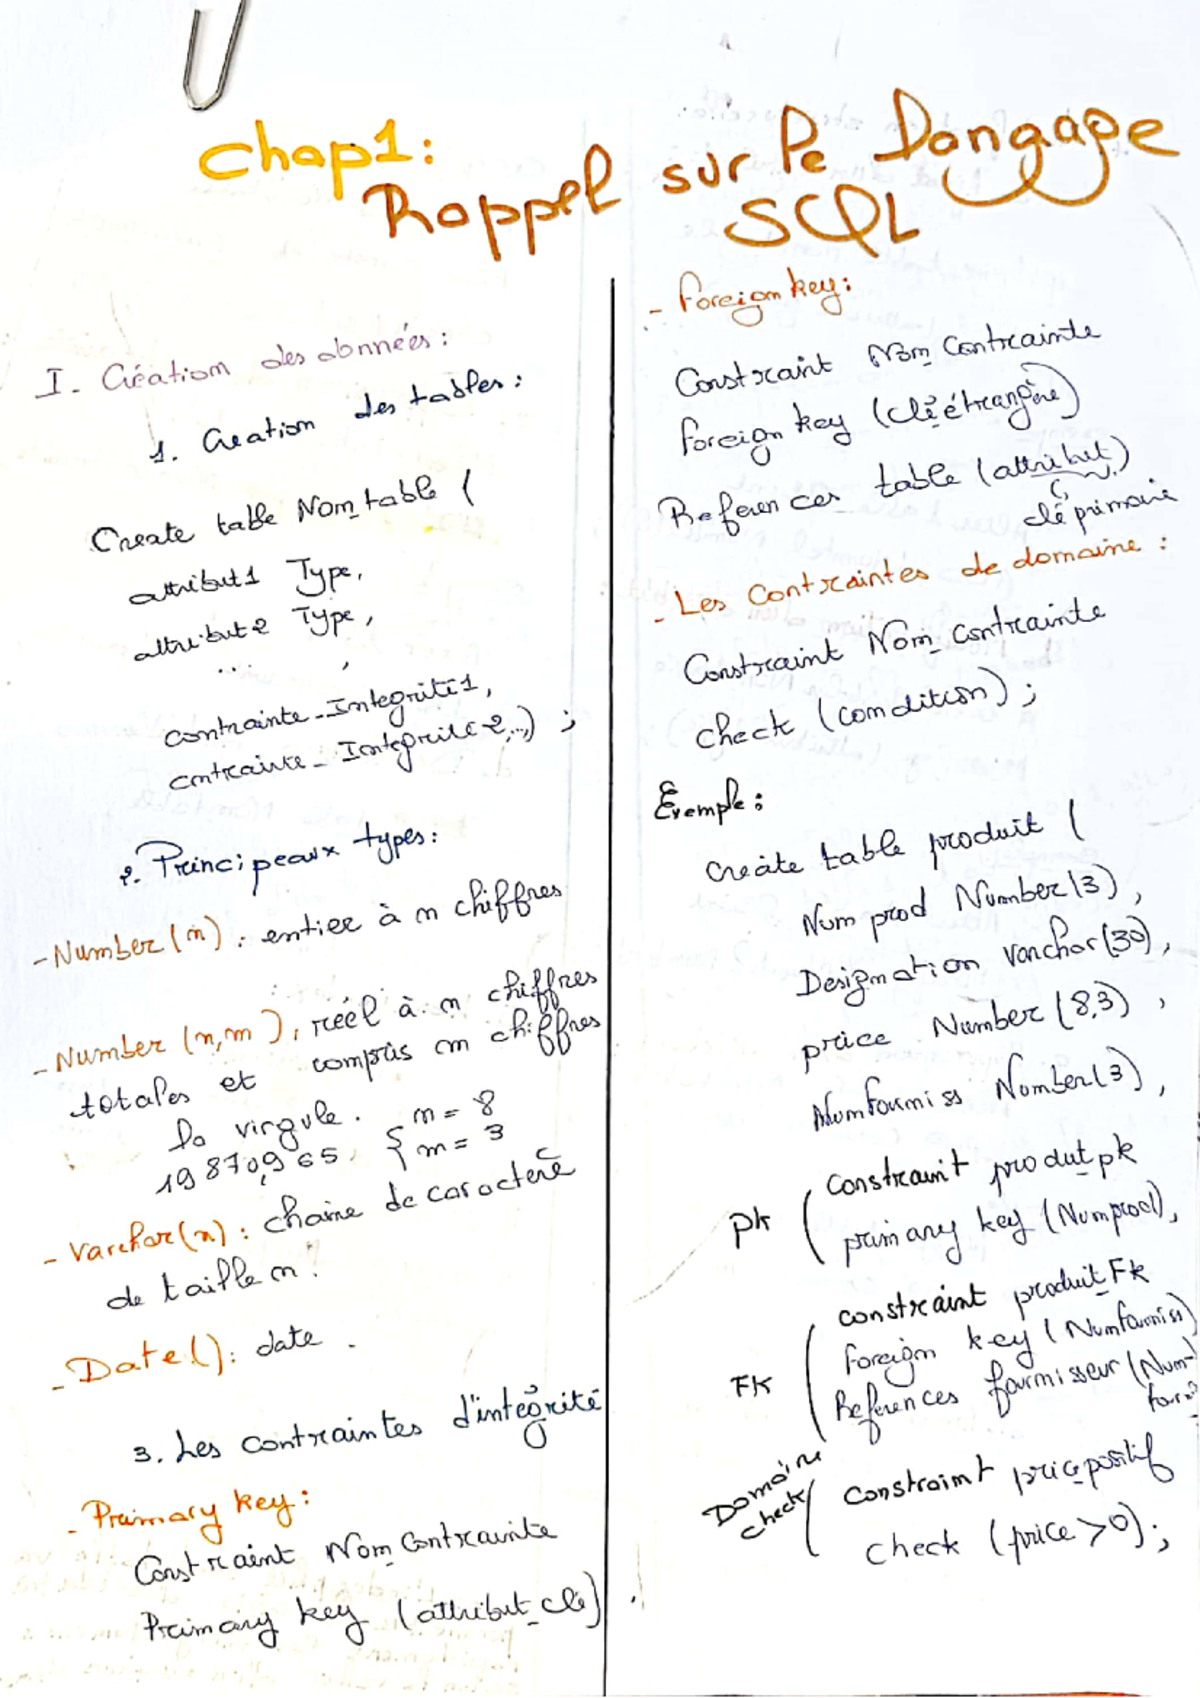 Chap1:
Rappel sur le Langage
SQL
I - Création des données :
1. Creation des tables :
Create table Nom_table (
attribut1 Type,
attribut2 Type,
... ,
contrainte_Integrité1,
contrainte_Integrité2,...) ;
2. Principeaux types :
- Number (n) : entier à n chiffres
- Number (n,m) : réel à n chiffres
totales et compris m chiffres
la virgule. { n = 8
19870,965 { m = 3
- Varchar(n) : chaine de caractere
de taille n.
- Date() : date .
3. Les contraintes d'intégrité
- Primary key :
Constraint Nom_Contrainte
Primary key (attribut_clé)
- Foreign key :
Constraint Nom_Contrainte
Foreign key (clé étrangère)
References table (attribut)
clé primaire
- Les Contraintes de domaine :
Constraint Nom_Contrainte
check (condition) ;
Exemple :
Create table produit (
Num prod Number(3),
Designation varchar(30),
price Number (8,3) ,
Numfourniss Number(3),
pk ( Constraint produt_pk
primary key (Numprod),
constraint produit_Fk
FK ( Foreign key (Numfourniss)
References fournisseur (Num-
Domaine
check ( constraint pricepositif
check (price > 0) ;